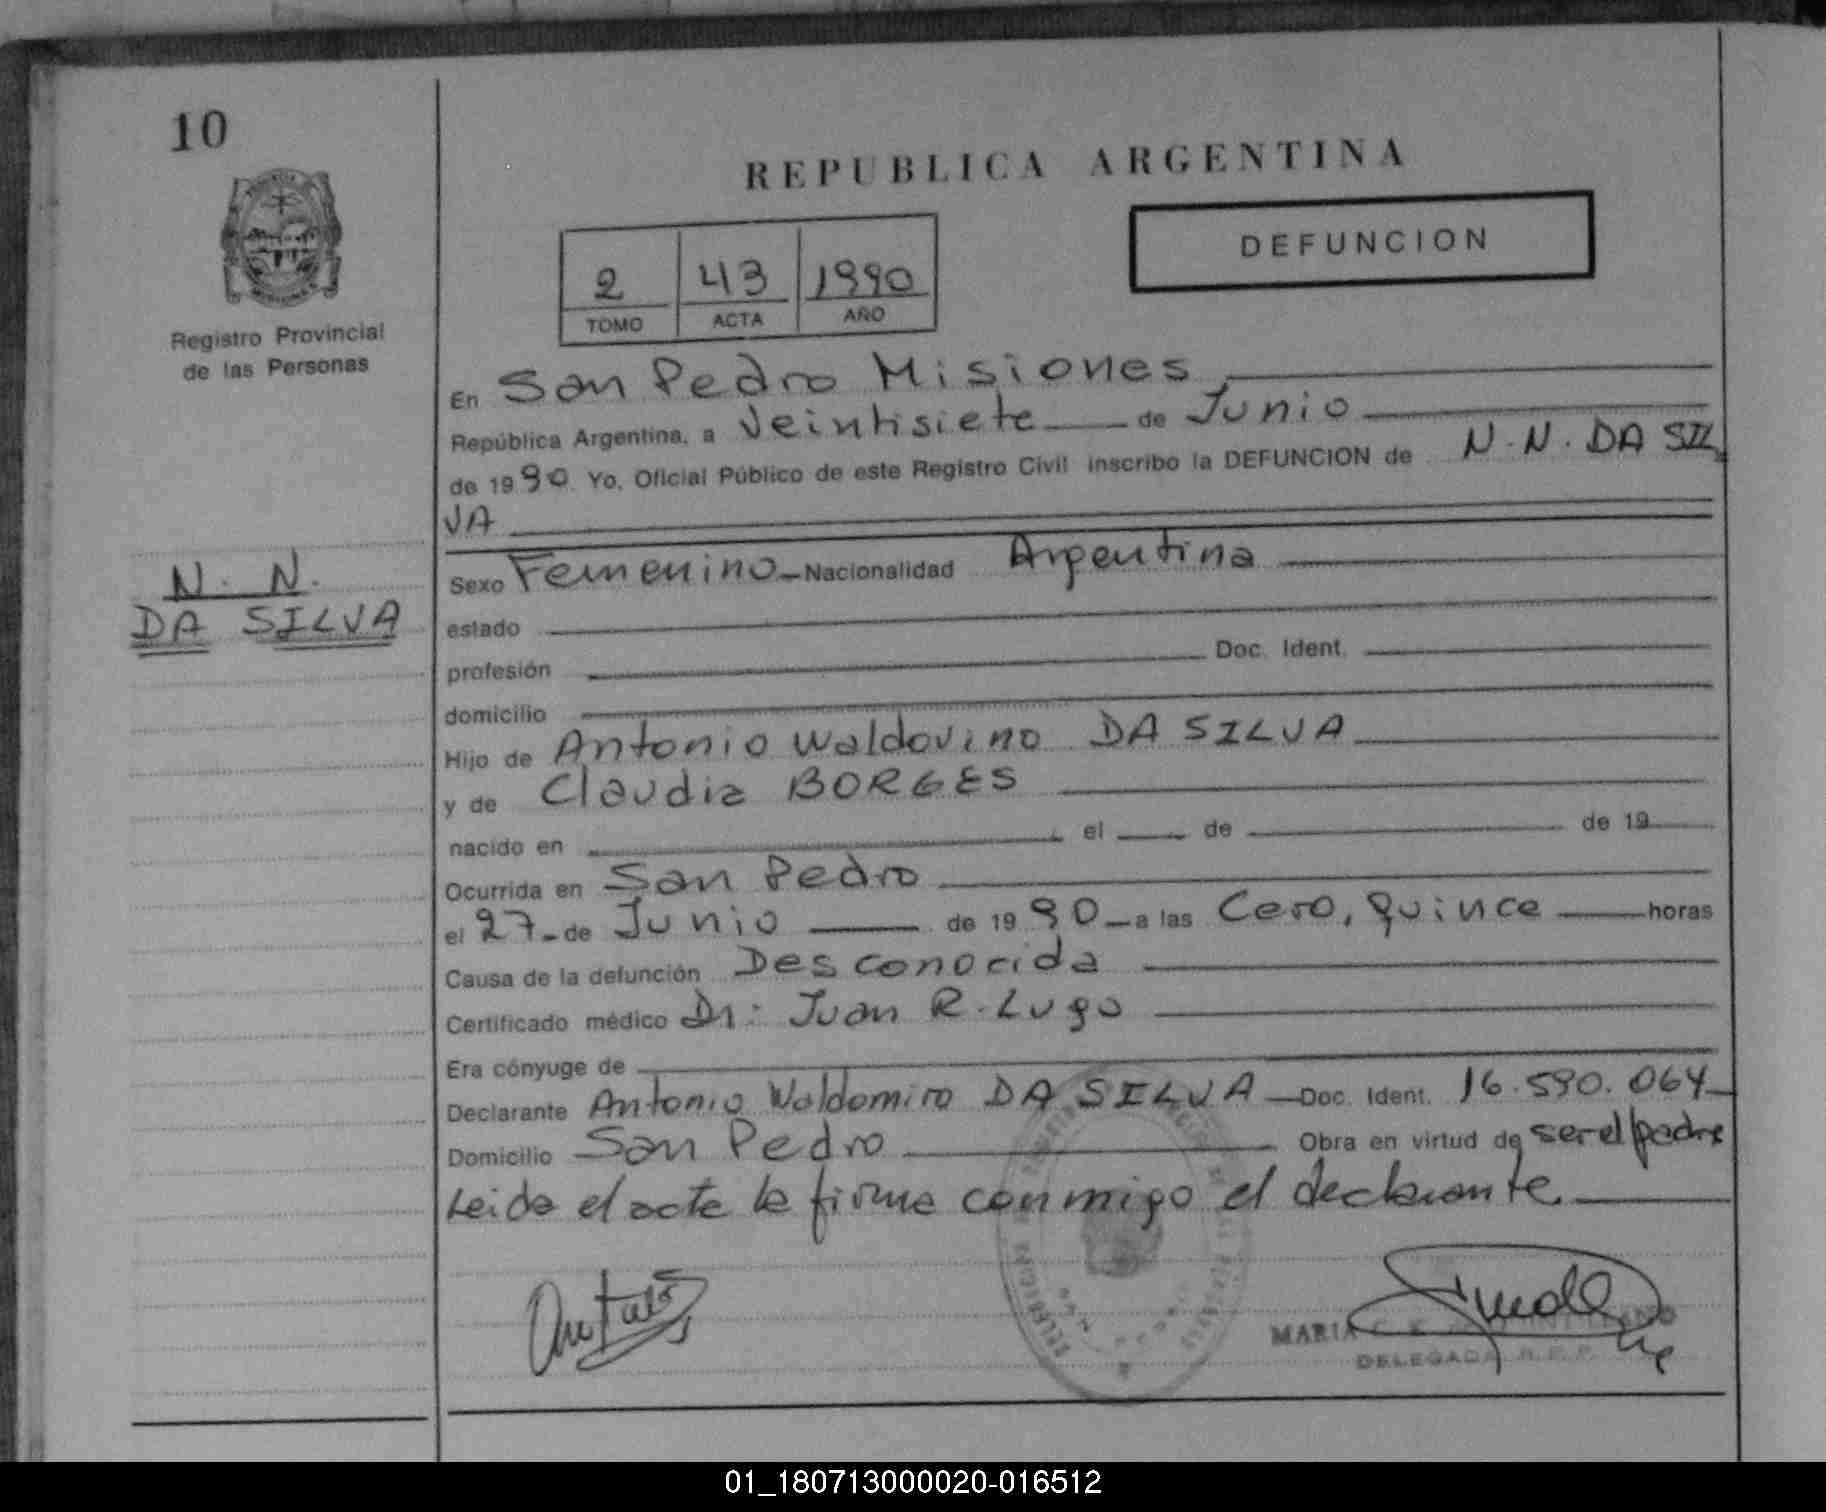 10
REPUBLICA ARGENTINA
DEFUNCION
2 43 1990
TOMO ACTA AÑO
Registro Provincial
de las Personas
En San Pedro Misiones
República Argentina, a Veintisiete de Junio
de 1990 Yo, Oficial Público de este Registro Civil inscribo la DEFUNCION de N. N. DA SIL
VA
N. N.
DA SILVA
Sexo Femenino Nacionalidad Argentina
estado
profesión Doc. Ident.
domicilio
Hijo de Antonio Waldovino DA SILVA
y de Claudia BORGES
nacido en el de de 19
Ocurrida en San Pedro
el 27 de Junio de 1990 a las Cero, quince horas
Causa de la defunción Desconocida
Certificado médico Dr: Juan R. Lugo
Era cónyuge de
Declarante Antonio Waldomiro DA SILVA Doc. Ident. 16.590.064
Domicilio San Pedro Obra en virtud de ser el padre
Leida el acta la firma conmigo el declarante
MARIA
DELEGADA R. P. P.
01_180713000020-016512